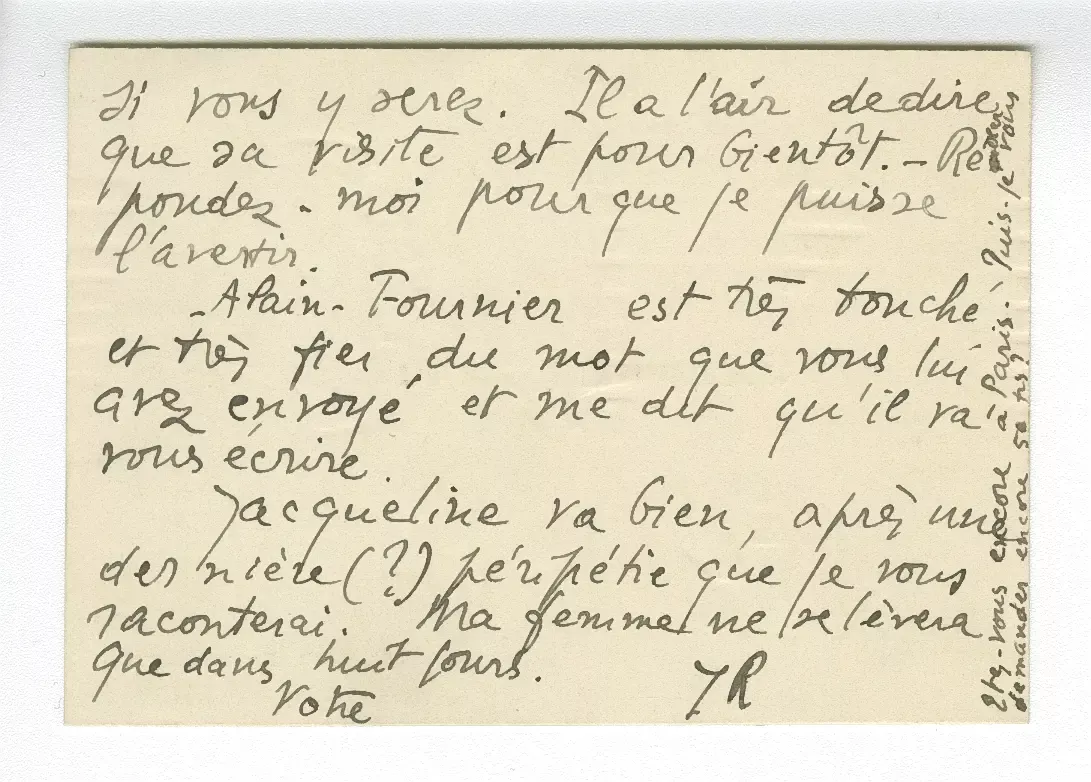 si vous y serez. Il a l'air de dire
que sa visite est pour bientôt. - Ré-
pondez-moi pour que je puisse
l'avertir.
- Alain-Fournier est très touché
et très fier du mot que vous lui
avez envoyé et me dit qu'il va
vous écrire.
Jacqueline va bien, après une
dernière (?) péripétie que je vous
raconterai. Ma femme ne se lèvera
que dans huit jours.
Votre
JR
Etes-vous encore à Paris. Puis-je vous
demander encore 50 frs?